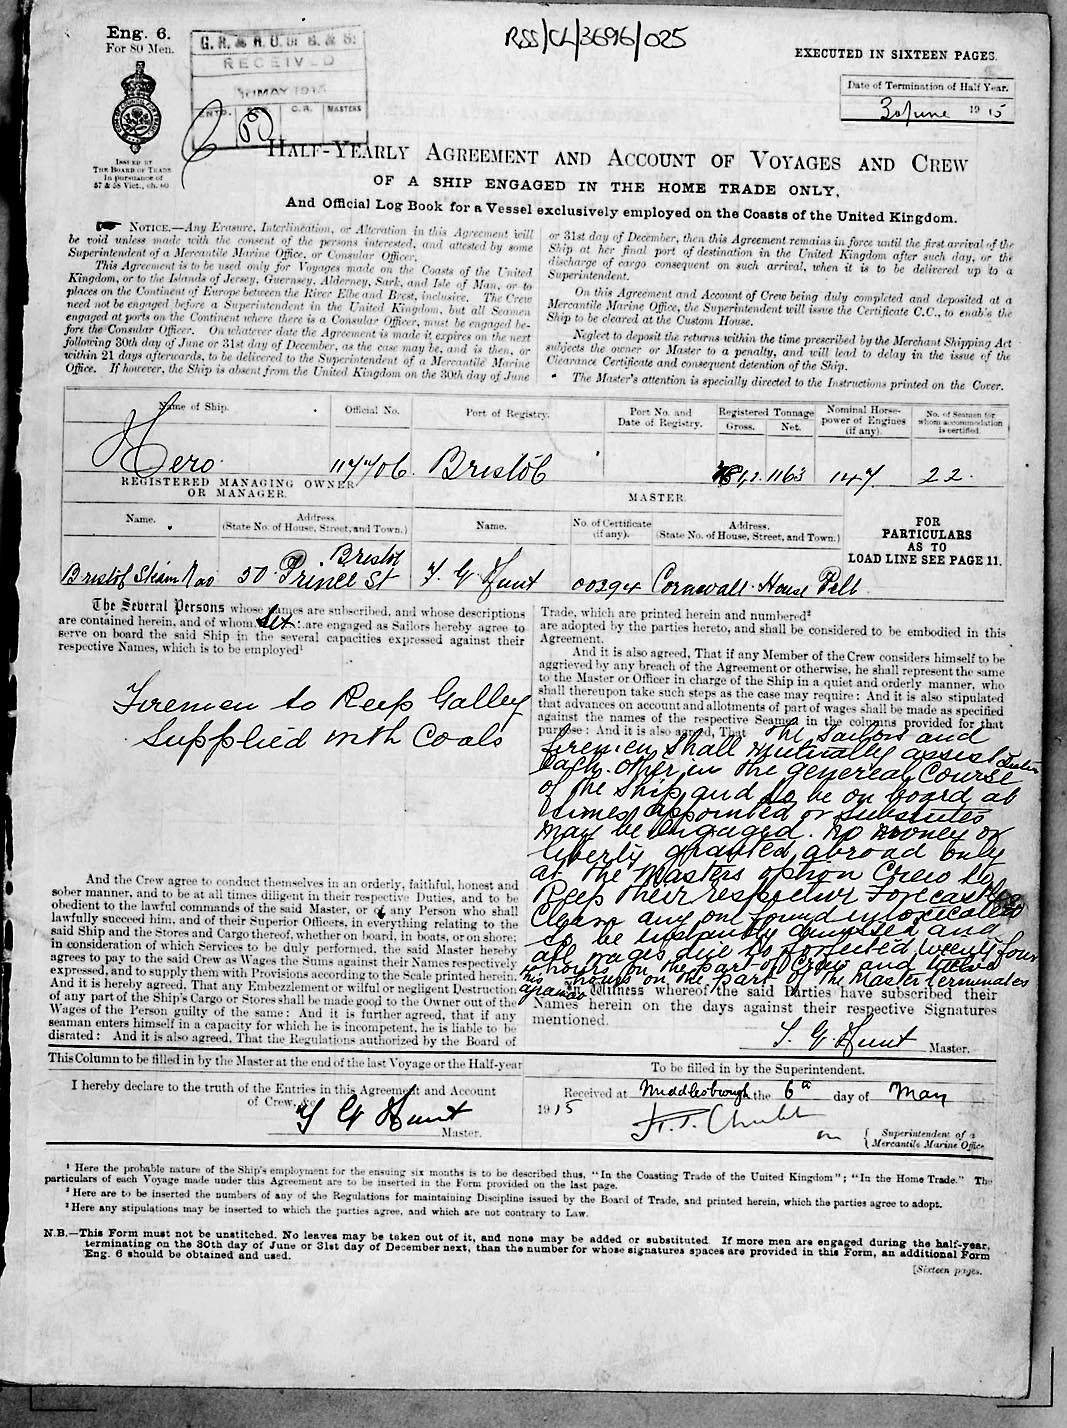 Eng. 6.
For 80 Men.
RSS/CL/3696/025
EXECUTED IN SIXTEEN PAGES.
G. R. & R. O. of S. & S.
RECEIVED
MAY 1915
C.R. MASTERS
Date of Termination of Half Year.
30 June 1915
ISSUED BY
THE BOARD OF TRADE
In pursuance of
57 & 58 Vict., ch. 60
HALF-YEARLY AGREEMENT AND ACCOUNT OF VOYAGES AND CREW
OF A SHIP ENGAGED IN THE HOME TRADE ONLY,
And Official Log Book for a Vessel exclusively employed on the Coasts of the United Kingdom.
NOTICE.—Any Erasure, Interlineation, or Alteration in this Agreement will
be void unless made with the consent of the persons interested, and attested by some
Superintendent of a Mercantile Marine Office, or Consular Officer.
This Agreement is to be used only for Voyages made on the Coasts of the United
Kingdom, or to the Islands of Jersey, Guernsey, Alderney, Sark, and Isle of Man, or to
places on the Continent of Europe between the River Elbe and Brest, inclusive. The Crew
need not be engaged before a Superintendent in the United Kingdom, but all Seamen
engaged at ports on the Continent where there is a Consular Officer, must be engaged be-
fore the Consular Officer. On whatever date the Agreement is made it expires on the next
following 30th day of June or 31st day of December, as the case may be, and is then, or
within 21 days afterwards, to be delivered to the Superintendent of a Mercantile Marine
Office. If however, the Ship is absent from the United Kingdom on the 30th day of June
or 31st day of December, then this Agreement remains in force until the first arrival of the
Ship at her final port of destination in the United Kingdom after such day, or the
discharge of cargo consequent on such arrival, when it is to be delivered up to a
Superintendent.
On this Agreement and Account of Crew being duly completed and deposited at a
Mercantile Marine Office, the Superintendent will issue the Certificate C.C., to enable the
Ship to be cleared at the Custom House.
Neglect to deposit the returns within the time prescribed by the Merchant Shipping Act
subjects the owner or Master to a penalty, and will lead to delay in the issue of the
Clearance Certificate and consequent detention of the Ship.
The Master's attention is specially directed to the Instructions printed on the Cover.
Name of Ship. Official No. Port of Registry. Port No. and Date of Registry. Registered Tonnage Gross. Net. Nominal Horse-power of Engines (if any). No. of Seamen for whom accommodation is certified.
Hero 117706 Bristol 1812 1163 147 22
REGISTERED MANAGING OWNER OR MANAGER.
MASTER.
Name. Address. (State No. of House, Street, and Town.) Name. No. of Certificate (if any). Address. (State No. of House, Street, and Town.)
FOR
PARTICULARS
AS TO
LOAD LINE SEE PAGE 11.
Bristol Steam Nav 50 Prince St Bristol F. G. Hunt 00394 Cornwall House Pill
The Several Persons whose names are subscribed, and whose descriptions
are contained herein, and of whom Six are engaged as Sailors hereby agree to
serve on board the said Ship in the several capacities expressed against their
respective Names, which is to be employed¹
Firemen to Keep Galley
Supplied with Coals
And the Crew agree to conduct themselves in an orderly, faithful, honest and
sober manner, and to be at all times diligent in their respective Duties, and to be
obedient to the lawful commands of the said Master, or of any Person who shall
lawfully succeed him, and of their Superior Officers, in everything relating to the
said Ship and the Stores and Cargo thereof, whether on board, in boats, or on shore;
in consideration of which Services to be duly performed, the said Master hereby
agrees to pay to the said Crew as Wages the Sums against their Names respectively
expressed, and to supply them with Provisions according to the Scale printed herein:
And it is hereby agreed, That any Embezzlement or wilful or negligent Destruction
of any part of the Ship's Cargo or Stores shall be made good to the Owner out of the
Wages of the Person guilty of the same: And it is further agreed, that if any
seaman enters himself in a capacity for which he is incompetent, he is liable to be
disrated: And it is also agreed, That the Regulations authorized by the Board of
Trade, which are printed herein and numbered²
are adopted by the parties hereto, and shall be considered to be embodied in this
Agreement.
And it is also agreed, That if any Member of the Crew considers himself to be
aggrieved by any breach of the Agreement or otherwise, he shall represent the same
to the Master or Officer in charge of the Ship in a quiet and orderly manner, who
shall thereupon take such steps as the case may require: And it is also stipulated
that advances on account and allotments of part of wages shall be made as specified
against the names of the respective Seamen in the columns provided for that
purpose: And it is also agreed, That The Sailors and
firemen shall mutually assist
each other in the general Course Duties
of the Ship and to be on board at
times appointed or substitutes
may be engaged. No money or
liberty granted abroad only
at the Masters option Crew to
Keep their respective Forecastles
Clean any one found intoxicated
to be instantly dismissed and
all wages due to forfeited. twenty four
hours on the part of Crew and twelve
hours on the part of the Master terminates
this agreement
In Witness whereof the said Parties have subscribed their
Names herein on the days against their respective Signatures
mentioned.
F. G. Hunt Master.
This Column to be filled in by the Master at the end of the last Voyage or the Half-year
I hereby declare to the truth of the Entries in this Agreement and Account
of Crew, &c.
F G Hunt
Master.
To be filled in by the Superintendent.
Received at Middlesbrough the 6th day of May
1915
Superintendent of a
Mercantile Marine Office
¹ Here the probable nature of the Ship's employment for the ensuing six months is to be described thus, "In the Coasting Trade of the United Kingdom"; "In the Home Trade." The
particulars of each Voyage made under this Agreement are to be inserted in the Form provided on the last page.
² Here are to be inserted the numbers of any of the Regulations for maintaining Discipline issued by the Board of Trade, and printed herein, which the parties agree to adopt.
³ Here any stipulations may be inserted to which the parties agree, and which are not contrary to Law.
N.B.—This Form must not be unstitched. No leaves may be taken out of it, and none may be added or substituted. If more men are engaged during the half-year,
terminating on the 30th day of June or 31st day of December next, than the number for whose signatures spaces are provided in this Form, an additional Form
Eng. 6 should be obtained and used.
[Sixteen pages.